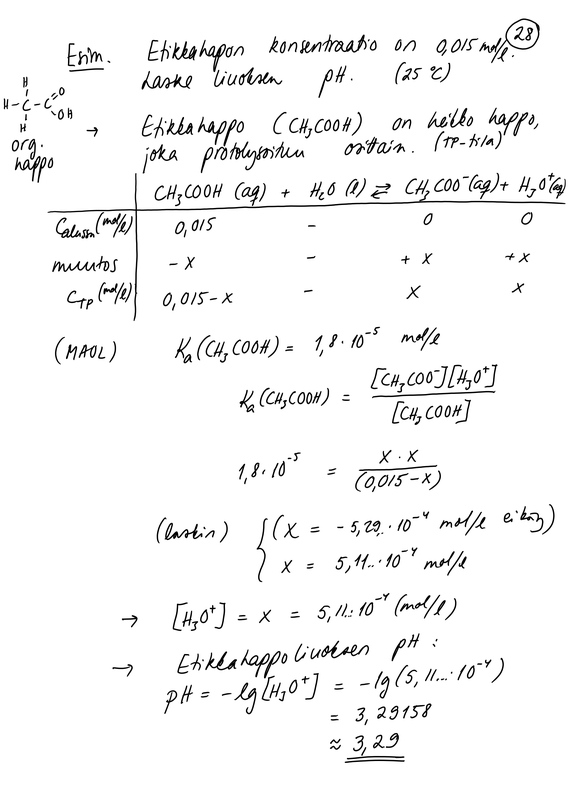 28
Esim. Etikkahapon konsentraatio on 0,015 mol/l.
Laske liuoksen pH. (25 °C)
H
H-C-C=O
OH
H
org.
happo
→ Etikkahappo (CH₃COOH) on heikko happo,
joka protolysoituu osittain. (TP-tila)
CH₃COOH (aq) + H₂O (l) ⇄ CH₃COO⁻(aq) + H₃O⁺(aq)
Calussa (mol/l) 0,015 - 0 0
muutos - x - + x + x
C_TP (mol/l) 0,015-x - x x
(MAOL) Ka(CH₃COOH) = 1,8·10⁻⁵ mol/l
Ka(CH₃COOH) = [CH₃COO⁻][H₃O⁺] / [CH₃COOH]
1,8·10⁻⁵ = x·x / (0,015-x)
(laskin) { (x = -5,29..·10⁻⁴ mol/l ei käy)
x = 5,11..·10⁻⁴ mol/l
→ [H₃O⁺] = x = 5,11..·10⁻⁴ (mol/l)
→ Etikkahappoliuoksen pH:
pH = -lg[H₃O⁺] = -lg(5,11...·10⁻⁴)
= 3,29158
≈ 3,29